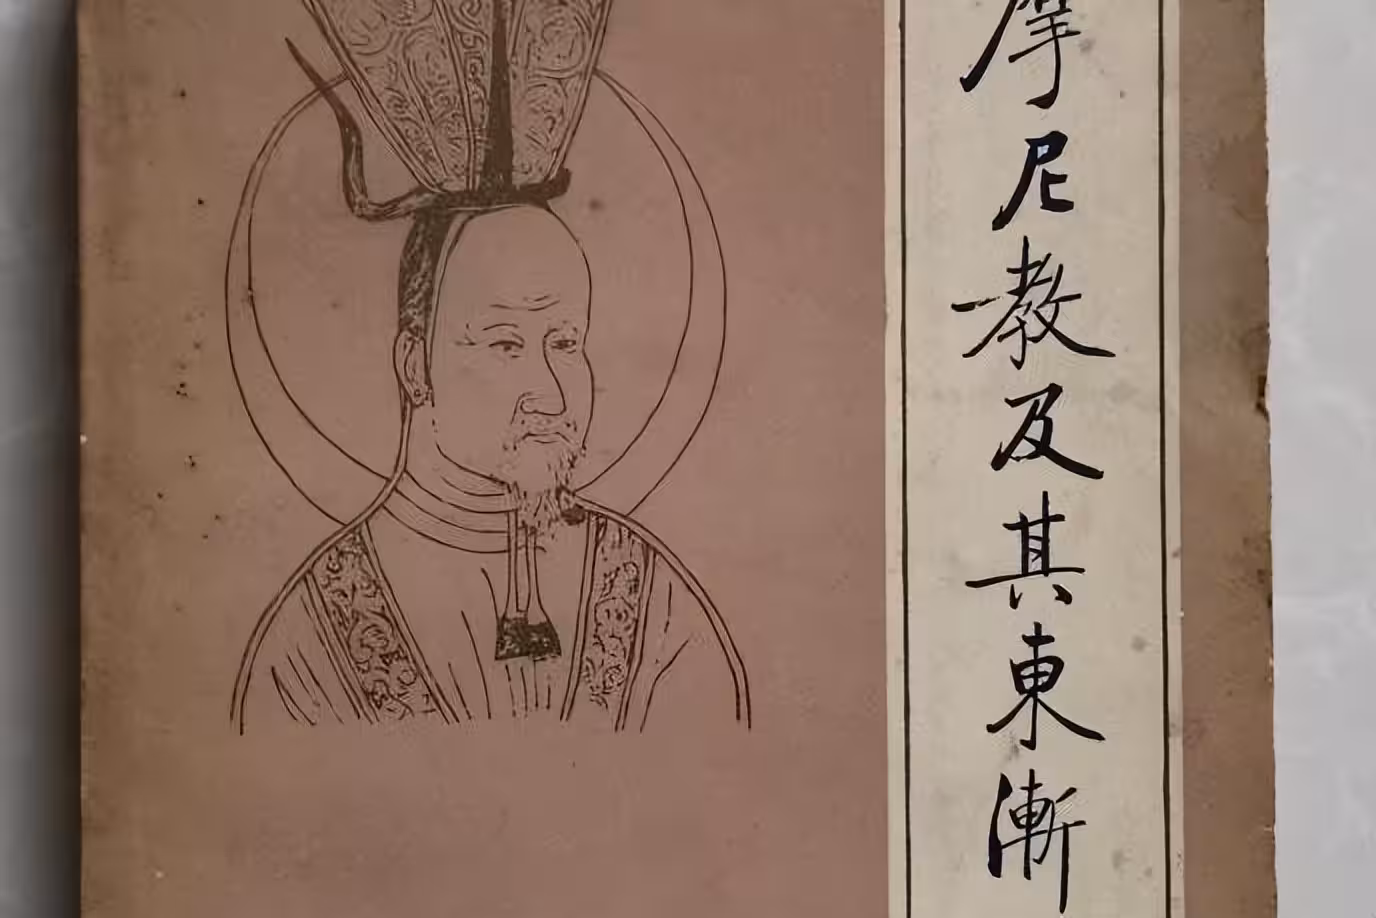 摩尼教及其東漸